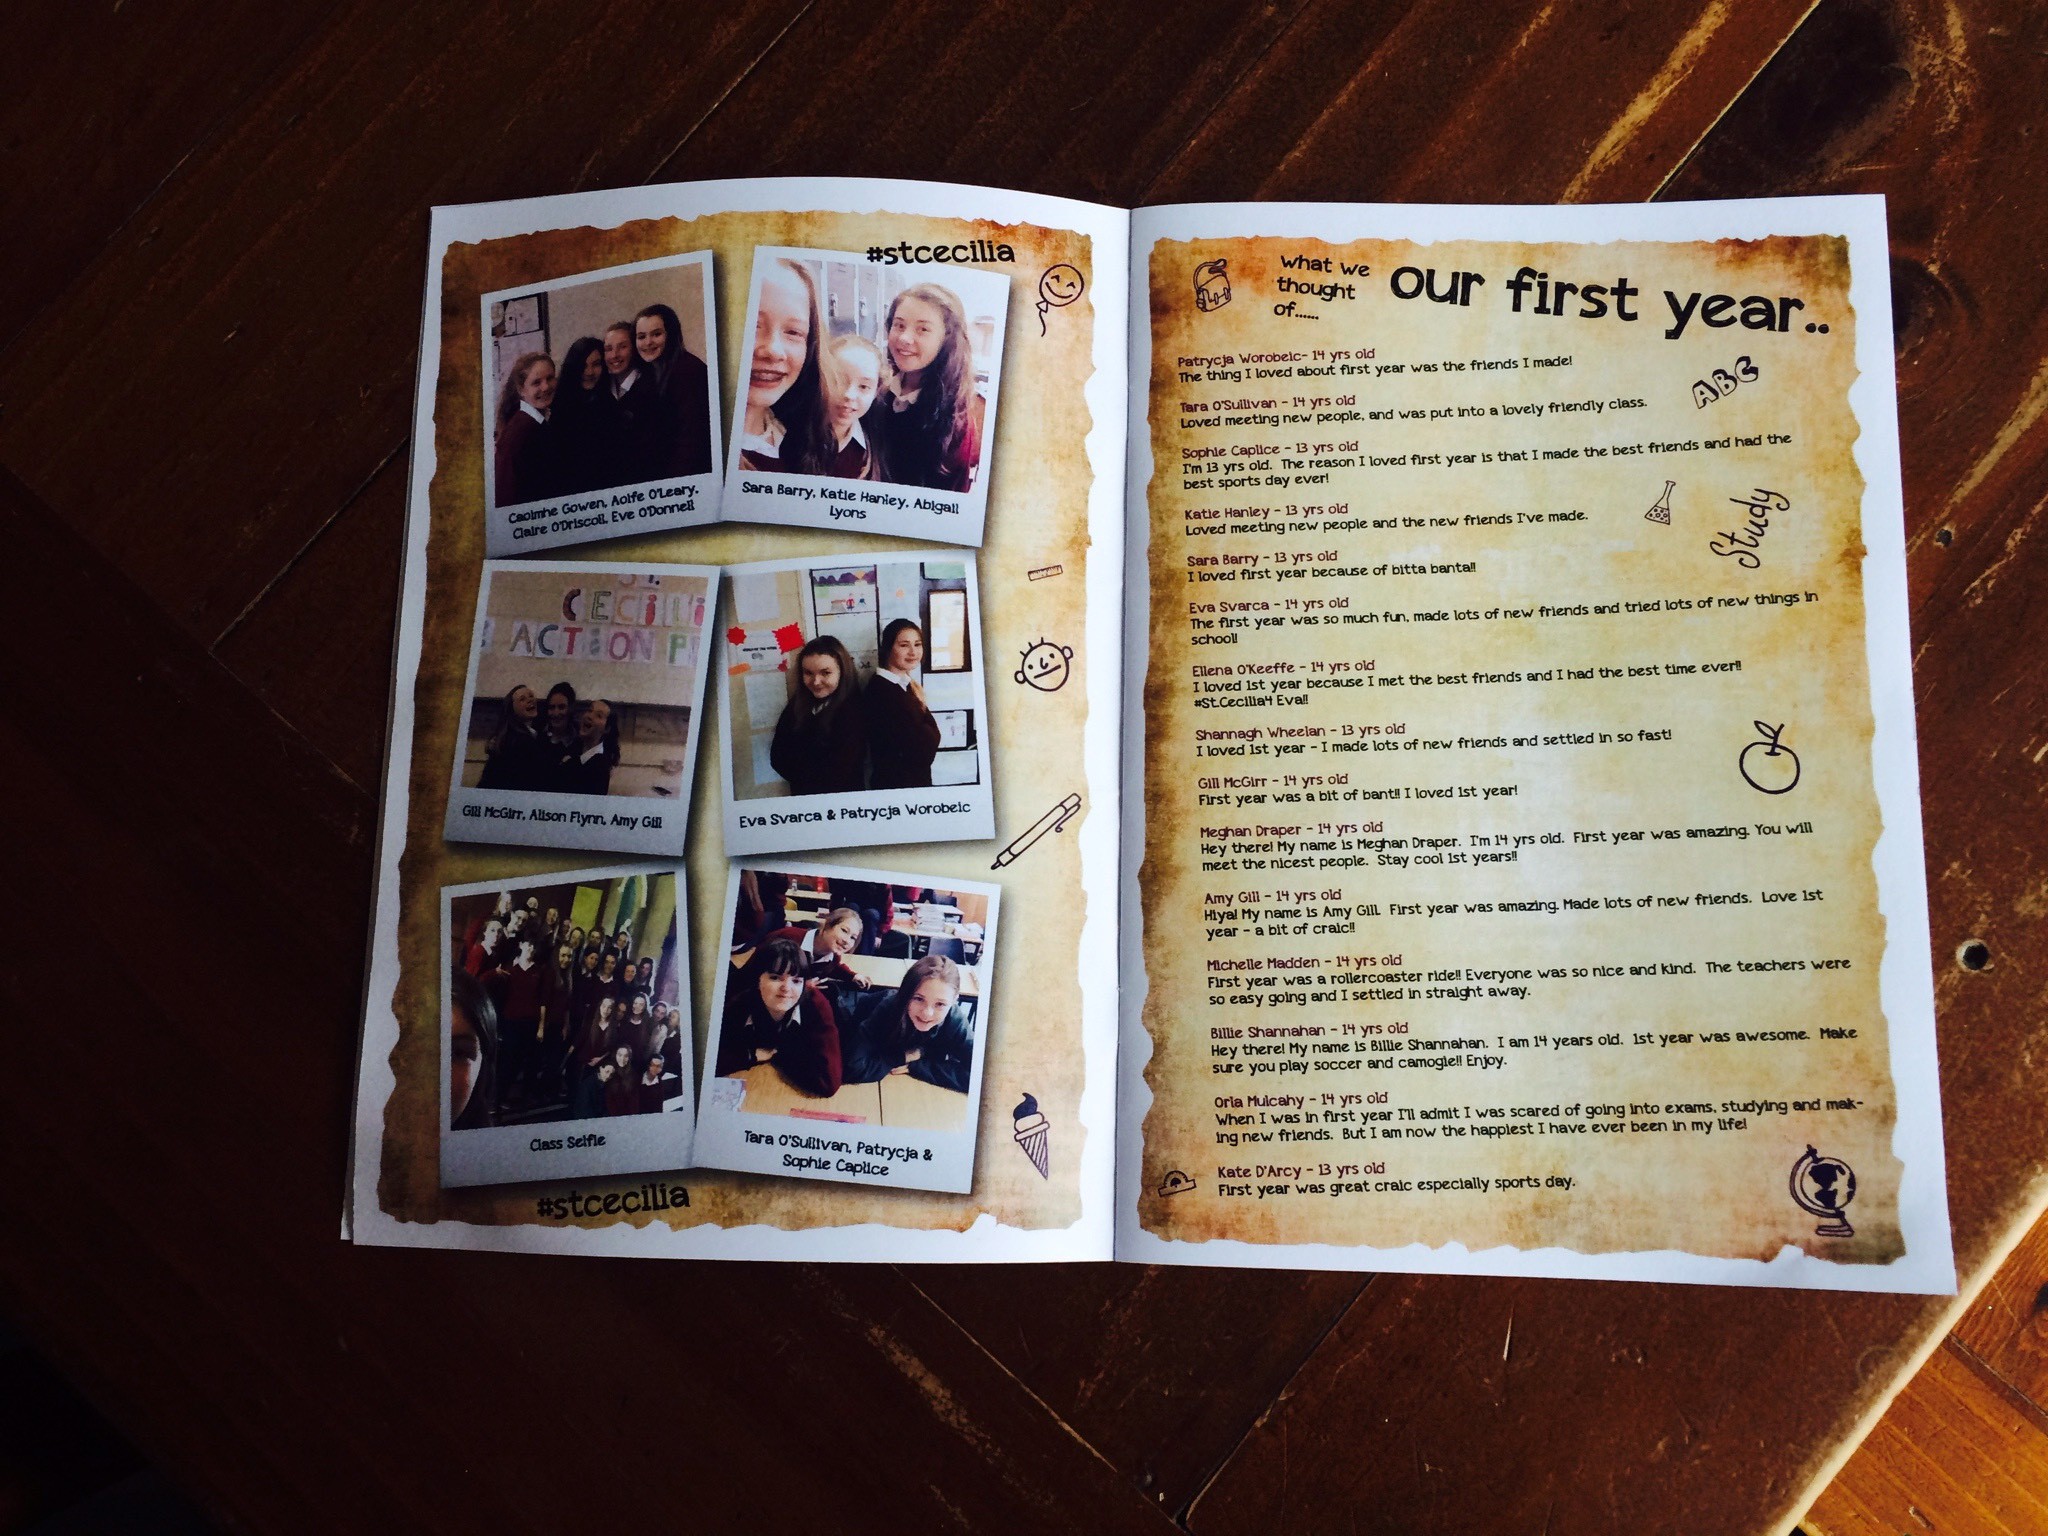 #stcecilia
Caoimhe Gowen, Aoife O'Leary,
Claire O'Driscoll, Eve O'Donnell
Sara Barry, Katie Hanley, Abigail
Lyons
CECiLi
ACTiON P
Gill McGirr, Alison Flynn, Amy Gill
Eva Svarca & Patrycja Worobeic
Class Selfie
Tara O'Sullivan, Patrycja &
Sophie Caplice
#stcecilia
what we
thought
of......
our first year..
Patrycja Worobeic- 14 yrs old
The thing I loved about first year was the friends I made!
ABC
Tara O'Sullivan - 14 yrs old
Loved meeting new people, and was put into a lovely friendly class.
Sophie Caplice - 13 yrs old
I'm 13 yrs old. The reason I loved first year is that I made the best friends and had the
best sports day ever!
Katie Hanley - 13 yrs old
Loved meeting new people and the new friends I've made.
Study
Sara Barry - 13 yrs old
I loved first year because of bitta banta!!
Eva Svarca - 14 yrs old
The first year was so much fun, made lots of new friends and tried lots of new things in
school!
Ellena O'Keeffe - 14 yrs old
I loved 1st year because I met the best friends and I had the best time ever!!
#St.Cecilia4 Eva!!
Shannagh Wheelan - 13 yrs old
I loved 1st year - I made lots of new friends and settled in so fast!
Gill McGirr - 14 yrs old
First year was a bit of bant!! I loved 1st year!
Meghan Draper - 14 yrs old
Hey there! My name is Meghan Draper. I'm 14 yrs old. First year was amazing. You will
meet the nicest people. Stay cool 1st years!!
Amy Gill - 14 yrs old
Hiya! My name is Amy Gill. First year was amazing. Made lots of new friends. Love 1st
year - a bit of craic!!
Michelle Madden - 14 yrs old
First year was a rollercoaster ride!! Everyone was so nice and kind. The teachers were
so easy going and I settled in straight away.
Billie Shannahan - 14 yrs old
Hey there! My name is Billie Shannahan. I am 14 years old. 1st year was awesome. Make
sure you play soccer and camogie!! Enjoy.
Orla Mulcahy - 14 yrs old
When I was in first year I'll admit I was scared of going into exams, studying and mak-
ing new friends. But I am now the happiest I have ever been in my life!
Kate D'Arcy - 13 yrs old
First year was great craic especially sports day.